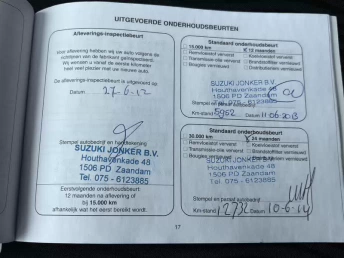 UITGEVOERDE ONDERHOUDSBEURTEN
Afleverings-inspectiebeurt
Voor aflevering hebben wij uw auto volgens de
voorschriften van de fabrikant geïnspecteerd.
Wij wensen u vanaf de eerste kilometer
heel veel plezier met uw nieuwe auto.
De afleverings-inspectiebeurt is uitgevoerd op:
Datum 27-6-12
Stempel autobedrijf en handtekening
SUZUKI JONKER B.V.
Houthavenkade 48
1506 PD Zaandam
Tel. 075 - 6123885
Eerstvolgende onderhoudsbeurt:
12 maanden na aflevering of
bij 15.000 km
afhankelijk van wat het eerst bereikt wordt.
Standaard onderhoudsbeurt
15.000 km
12 maanden
Remvloeistof ververst
Koelvloeistof ververst
Transmissie-olie ververst
Brandstoffilter vernieuwd
Bougies vernieuwd
Distributieriem vernieuwd
SUZUKI JONKER B.V.
Houthavenkade 48
1506 PD Zaandam
075 - 6123885
Stempel en paraaf autobedrijf
Km-stand 5952 Datum 11-06-2013
Standaard onderhoudsbeurt
30.000 km
24 maanden
Remvloeistof ververst
Koelvloeistof ververst
Transmissie-olie ververst
Brandstoffilter vernieuwd
Bougies vernieuwd
Distributieriem vernieuwd
SUZUKI JONKER B.V.
Houthavenkade 48
1506 PD Zaandam
Tel. 075 - 6123885
Stempel en paraaf autobedrijf
Km-stand 12732 Datum 10-6-14
17